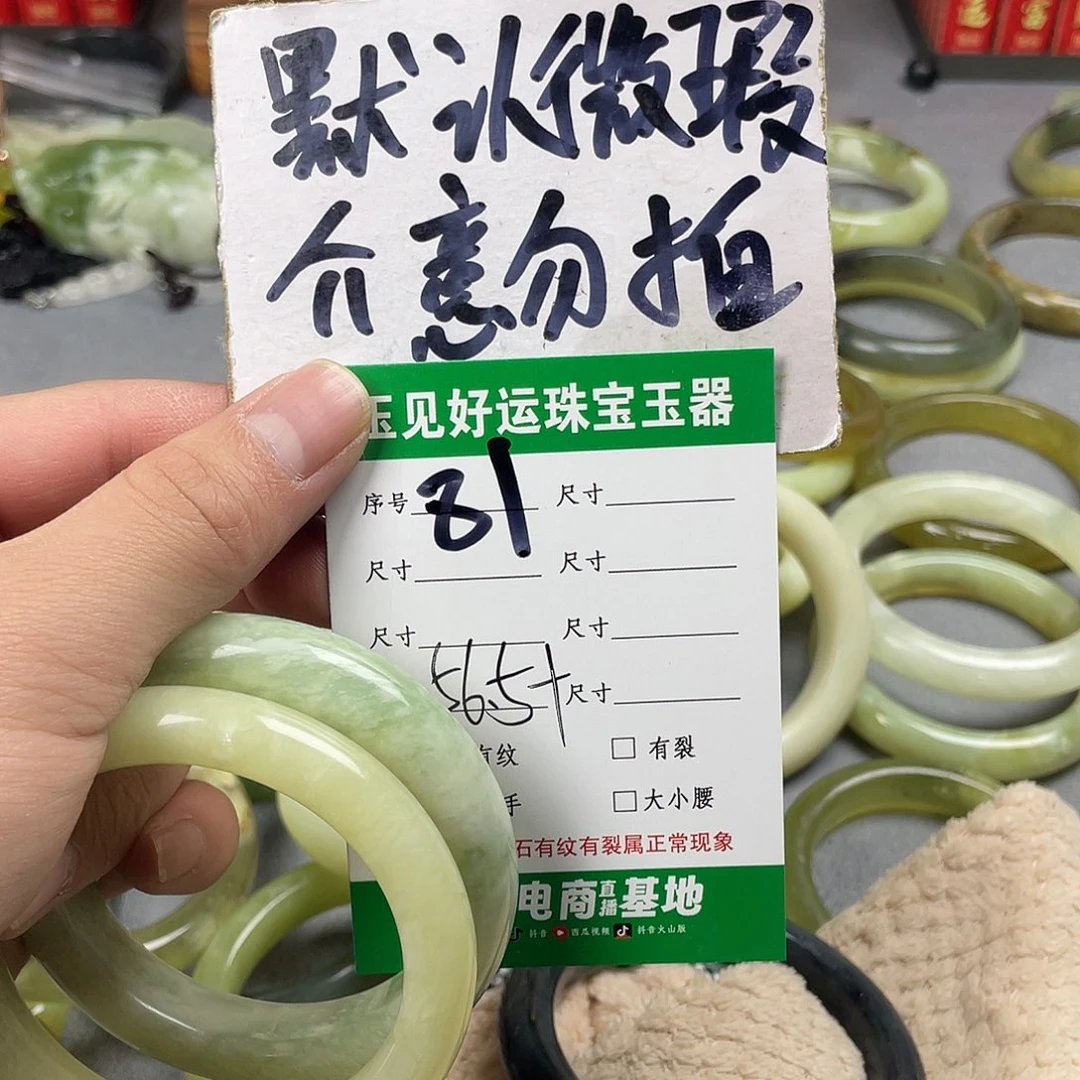 默认微瑕
介意勿拍
玉见好运珠宝玉器
序号 81 尺寸
尺寸 尺寸
尺寸 尺寸
56.5+ 尺寸
有纹 □ 有裂
手 □ 大小腰
石有纹有裂属正常现象
电商直播基地
抖音 西瓜视频 抖音火山版